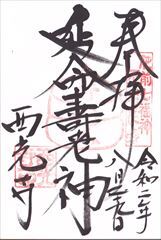 奉拝
令和二年
八月二十九日
延命寿老神
西光寺